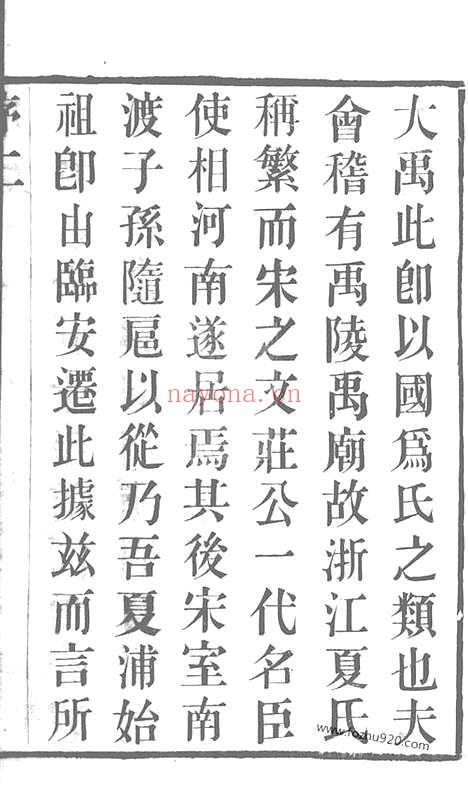 大禹此卽以國爲氏之類也夫
會稽有禹陵禹廟故浙江夏氏
稱繁而宋之文莊公一代名臣
使相河南遂居焉其後宋室南
渡子孫隨扈以從乃吾夏浦始
祖卽由臨安遷此據玆而言所
nayona.cn
www.rozhu920.com